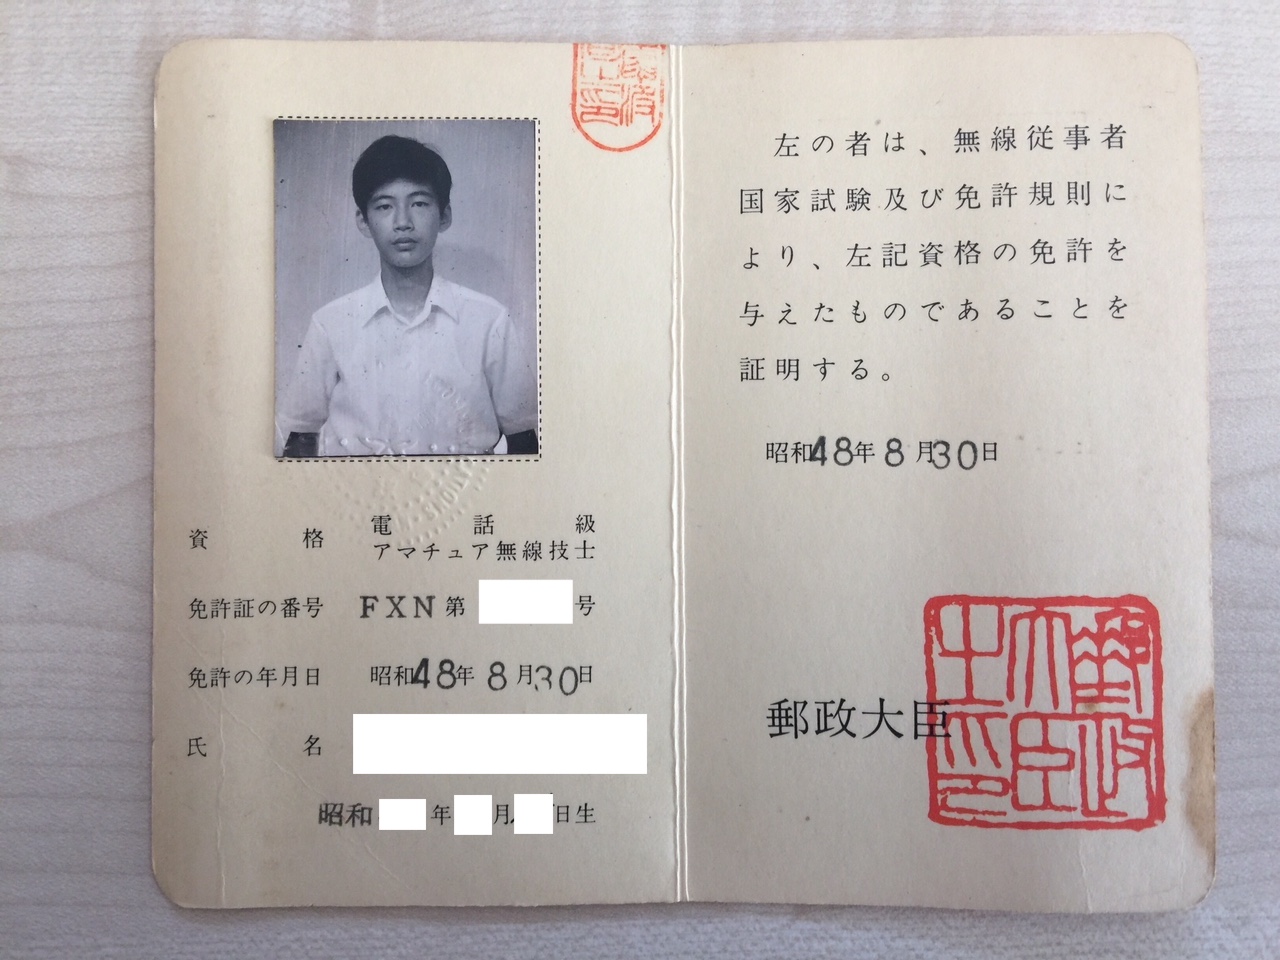 資格 電話級
アマチュア無線技士
免許証の番号 FXN 第 号
免許の年月日 昭和48年8月30日
氏名
昭和 年 月 日生
左の者は、無線従事者
国家試験及び免許規則に
より、左記資格の免許を
与えたものであることを
証明する。
昭和48年8月30日
郵政大臣
郵政大臣之印